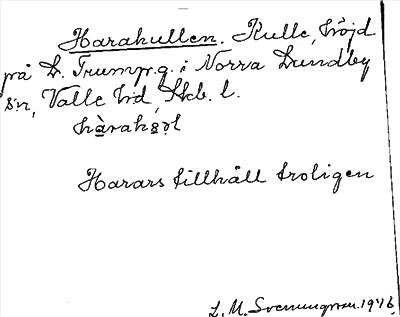 Harakullen. Kulle, höjd
på L. Trumpr.g. i Norra Lundby
sn, Valle hd, Skb. l.
hàrakọl
Harars tillhåll troligen
L. M. Svenungsson. 1946.